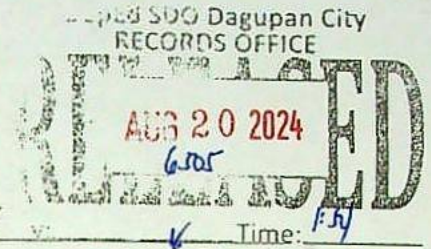 SDO Dagupan City
RECORDS OFFICE
RELEASED
AUG 20 2024
6505
Time: